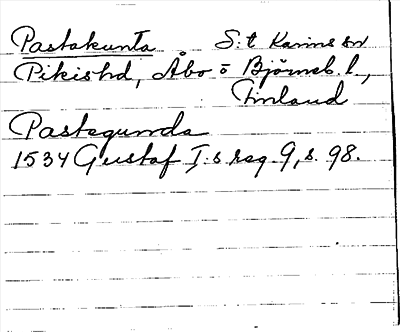 Pastakunta S:t Karins sn
Pikis hd, Åbo o Björneb. l.,
Finland
Pastegunda
1534 Gustaf I:s reg. 9, s. 98.